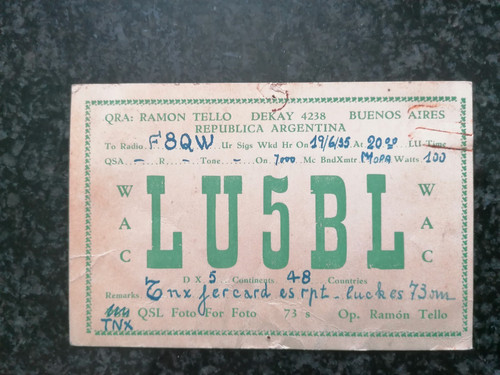 QRA: RAMON TELLO DEKAY 4238 BUENOS AIRES
REPUBLICA ARGENTINA
To Radio F8QW Ur Sigs Wkd Hr On 19/6/35 At 20 LU-Time
QSA - R - Tone - On 7000 Mc BndXmtr MOPA Watts 100
WAC LU5BL WAC
DX 5 Continents 48 Countries
Remarks Tnx fer card es rpt. luck es 73 om
TNX QSL Foto For Foto 73 s Op. Ramón Tello